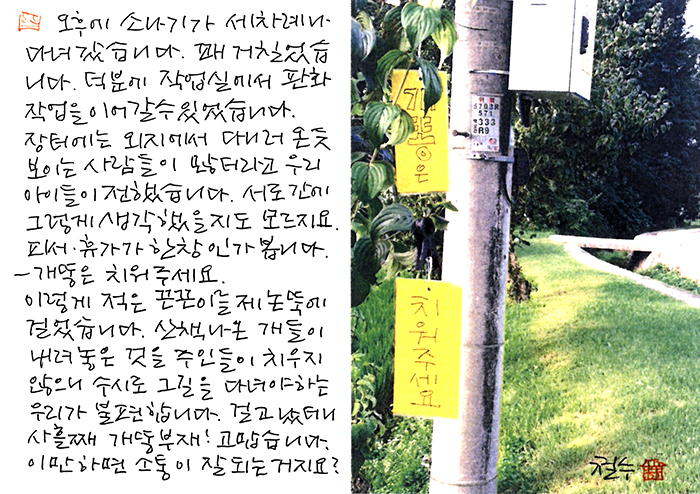 오후에 소나기가 세차례나
다녀갔습니다. 꽤 거칠었습
니다. 덕분에 작업실에서 판화
작업을 이어갈 수 있었습니다.
장터에는 외지에서 다니러 온듯
보이는 사람들이 많더라고 우리
아이들이 전했습니다. 서로간에
그렇게 생각했을지도 모르지요.
피서·휴가가 한창인가 봅니다.
-개똥은 치워주세요.
이렇게 적은 끈끈이들 제 논뚝에
걸었습니다. 산책나온 개들이
내려놓은 것을 주인들이 치우지
않으니 수시로 그길을 다녀야하는
우리가 불편합니다. 걸고 났더니
사흘째 개똥부재! 고맙습니다.
이만하면 소통이 잘 되는 거지요?
개똥은
치워주세요
5703R
571
1333
R9
철수